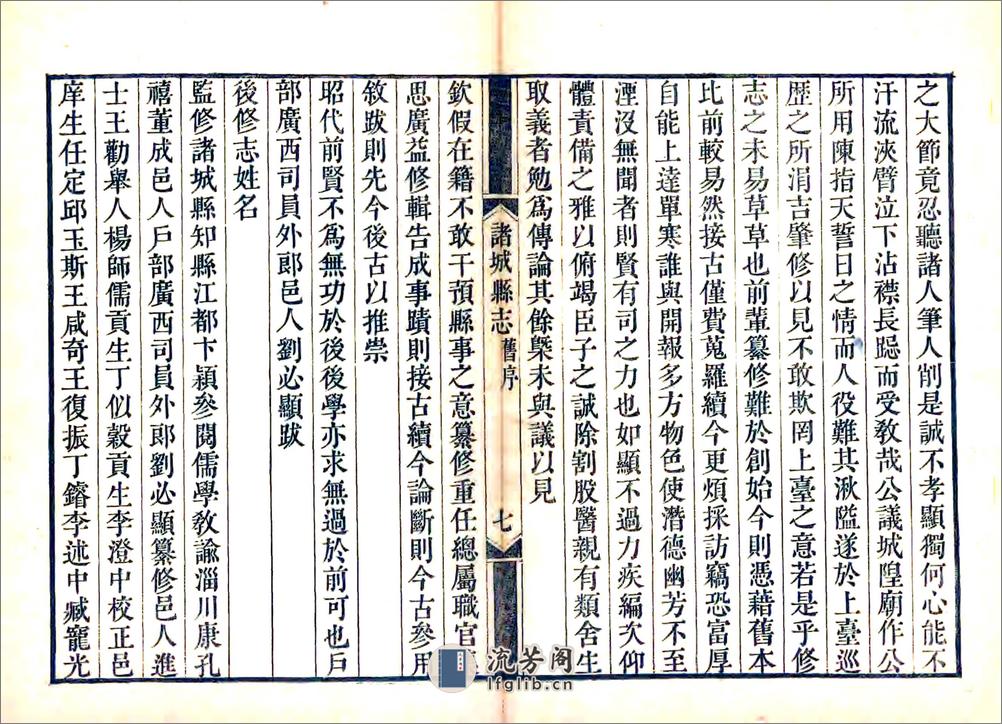 之大節竟忍聽諸人筆人削是誠不孝顯獨何心能不
汗流浹臂泣下沾襟長跽而受教哉公議城隍廟作公
所用陳指天誓日之情而人役難其湫隘遂於上臺巡
歷之所涓吉肇修以見不敢欺罔上臺之意若是乎修
志之未易草草也前輩纂修難於創始今則憑藉舊本
比前較易然接古僅費蒐羅續今更煩採訪竊恐富厚
自能上達單寒誰與開報多方物色使潛德幽芳不至
湮沒無聞者則賢有司之力也如顯不過力疾編次仰
體責備之雅以俯竭臣子之誠除割股醫親有類舍生
取義者勉為傳論其餘槩未與議以見
諸城縣志 舊序 七
欽假在籍不敢干預縣事之意纂修重任總屬職官
思廣益修輯告成事蹟則接古續今論斷則今古參用
敘跋則先今後古以推崇
昭代前賢不為無功於後後學亦求無過於前可也戶
部廣西司員外郎邑人劉必顯跋
後修志姓名
監修諸城縣知縣江都卞穎參閱儒學教諭淄川康孔
禧董成邑人戶部廣西司員外郎劉必顯纂修邑人進
士王勸舉人楊師儒貢生丁似穀貢生李澄中校正邑
庠生任定邱玉斯王咸奇王復振丁鐂李述中臧寵光
流芳閣
lfglib.cn